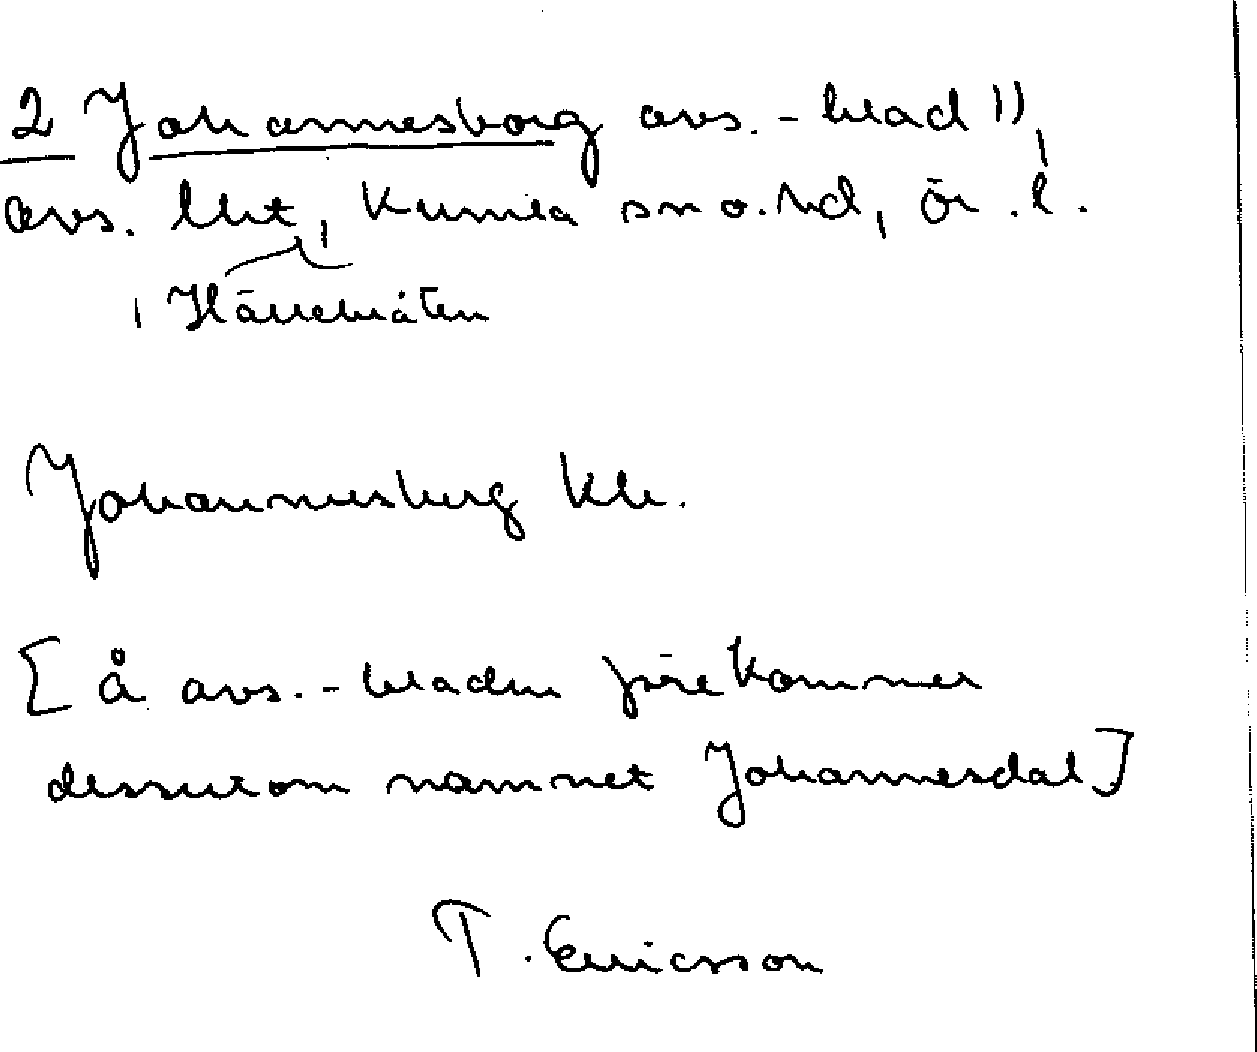 2 Johannesborg avs.-blad 11,
avs. lht, Kumla sn o. hd, Ör. l.
, Hällebråten
Johannesberg kb.
[å avs.-bladen förekommer
dessutom namnet Johannesdal]
T. Ericsson